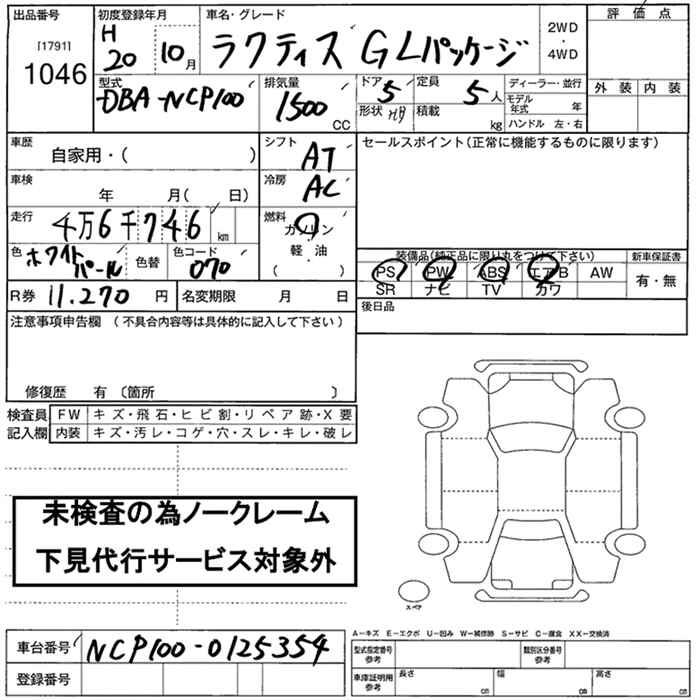 出品番号 初度登録年月 車名・グレード 2WD ・ 4WD 評価点
[1791] 1046 H 20 10月 ラクティス GLパッケージ
外装 内装
型式 排気量 ドア 5 定員 5人 ディーラー・並行
DBA-NCP100 1500 CC 形状 積載 kg モデル年式 年
ハンドル 左・右
車歴 シフト セールスポイント(正常に機能するものに限ります)
自家用・( ) AT
車検 冷房
年 月( 日) AC
走行 4万6千746 km 燃料 ガソリン
軽・油
( )
色 ホワイトパール 色替 色コード 070
装備品(純正品に限り丸をつけて下さい) 新車保証書
PS PW ABS エアB AW 有・無
SR ナビ TV カワ
R券 11,270 円 名変期限 月 日 後日品
注意事項申告欄 (不具合内容等は具体的に記入して下さい)
修復歴 有 〔箇所 〕
検査員 FW キズ・飛石・ヒビ割・リペア跡・X要
記入欄 内装 キズ・汚レ・コゲ・穴・スレ・キレ・破レ
未検査の為ノークレーム
下見代行サービス対象外
スペア
A-キズ E-エクボ U-凹み W-補修跡 S-サビ C-腐食 XX-交換済
車台番号 NCP100-0125354 型式指定番号 参考 類別区分番号 参考
登録番号 車庫証明用 参考 長さ cm 幅 cm 高さ cm